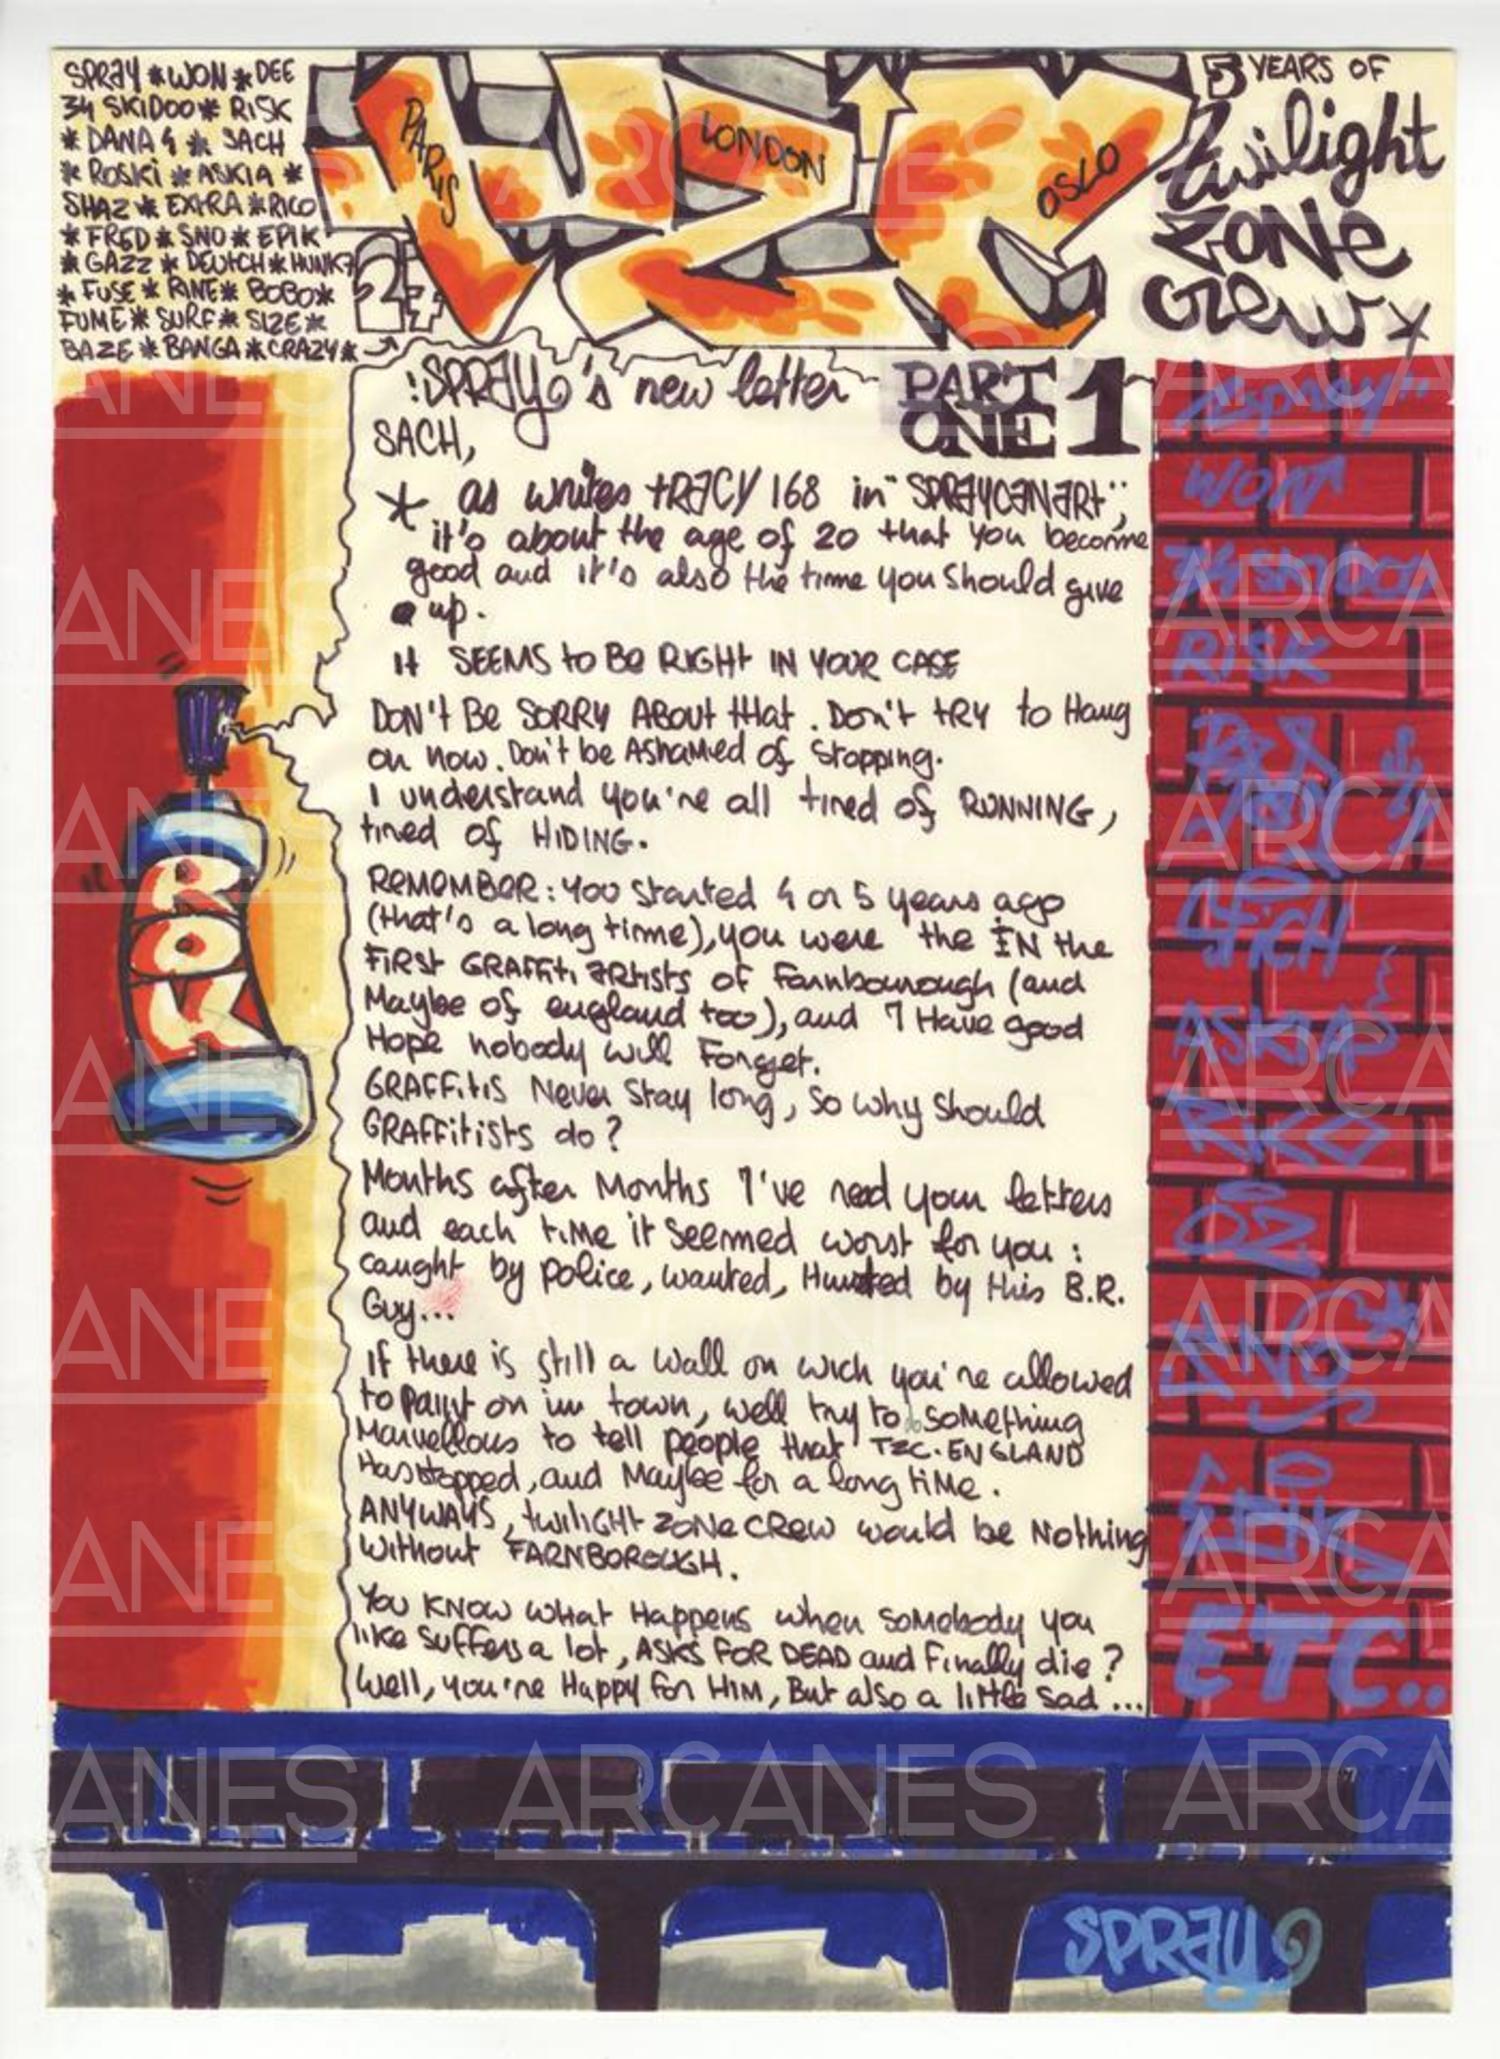 SPRAY * WON * DEE
34 SKIDOO * RISK
* DANA 4 * SACH
* ROSKI * ASKIA *
SHAZ * EXTRA * RICO
* FRED * SNO * EPIK
* GAZZ * DEUTCH * HUNK7
* FUSE * RINE * BOBO *
FUME * SURF * SIZE *
BAZE * BANGA * CRAZY *
TZC
PARIS
LONDON
OSLO
5 YEARS OF
twilight
ZONE
CREW *
:SPRAY's new letter
PART
ONE 1
SACH,
* as writes tRACY 168 in "SPRAYCANARt",
it's about the age of 20 that you become
good and it's also the time you should give
up.
It SEEMS to BE RIGHt IN YOUR CASE
DON't BE SORRY ABOUt tHAt. DON't tRY to Hang
on now. Don't be AsHaMed of stopping.
I understand you're all tired of RUNNING,
tired of HIDING.
REMEMBER: YOU started 4 or 5 years ago
(that's a long time), you were the IN the
FIRSt GRAFFiti ARtists of Farnbourough (and
Maybe of england too), and I Have good
Hope nobody will Forget.
GRAFFitIS Never Stay long, so why should
GRAFFitiSts do?
Months after Months I've read your letters
and each tiMe it seemed worst for you :
caught by police, wanted, Hunted by this B.R.
Guy...
If there is still a wall on wich you're allowed
to paint on in town, well try to do soMething
Marvellous to tell people that TZC. ENGLAND
Has stopped, and Maybe for a long tiMe.
ANYWAYS, twiliGHt ZONE CREW would be Nothing
without FARNBOROUGH.
YOU KNOW WHAt Happens when soMebody you
like suffers a lot, ASKS FOR DEAD and Finally die ?
Well, you're Happy for HIM, But also a little sad ...
"SPRAY"
WON
34 SKIDOO
RISK
SACH
ASKIA
ETC..
SPRAY
ARCANES